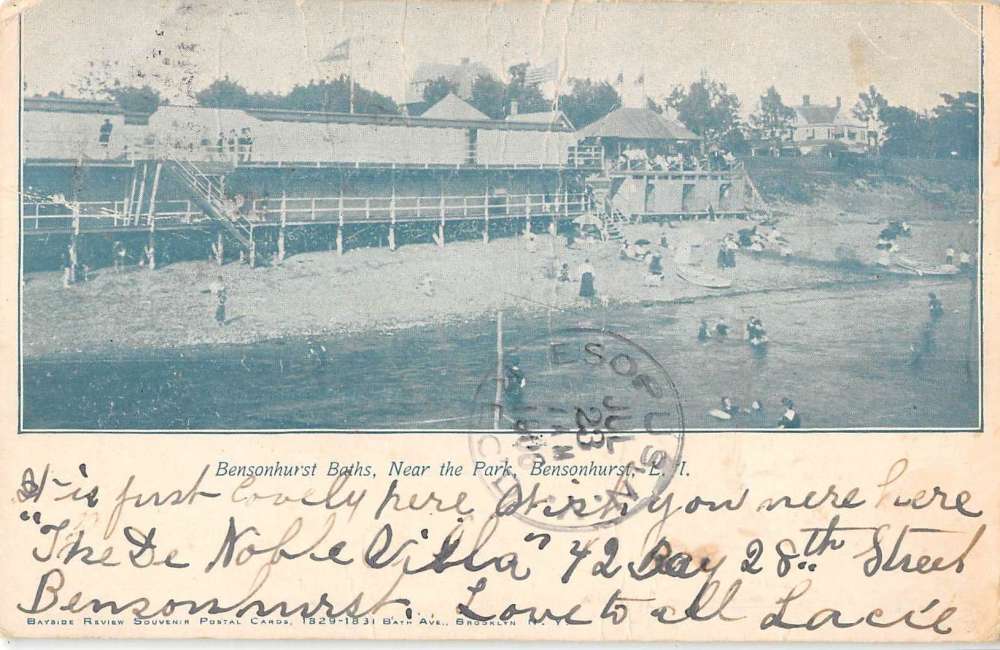 ESOPUS N.Y.
JUL 23
1 AM
1906
REC'D.
Bensonhurst Baths, Near the Park, Bensonhurst, L. I.
It is just lovely here Wish you were here
"The De Noble Villa" 42 Bay 28th Street
Bensonhurst. Love to all Lacie
BAYSIDE REVIEW SOUVENIR POSTAL CARDS, 1829-1831 BATH AVE., BROOKLYN N. Y.